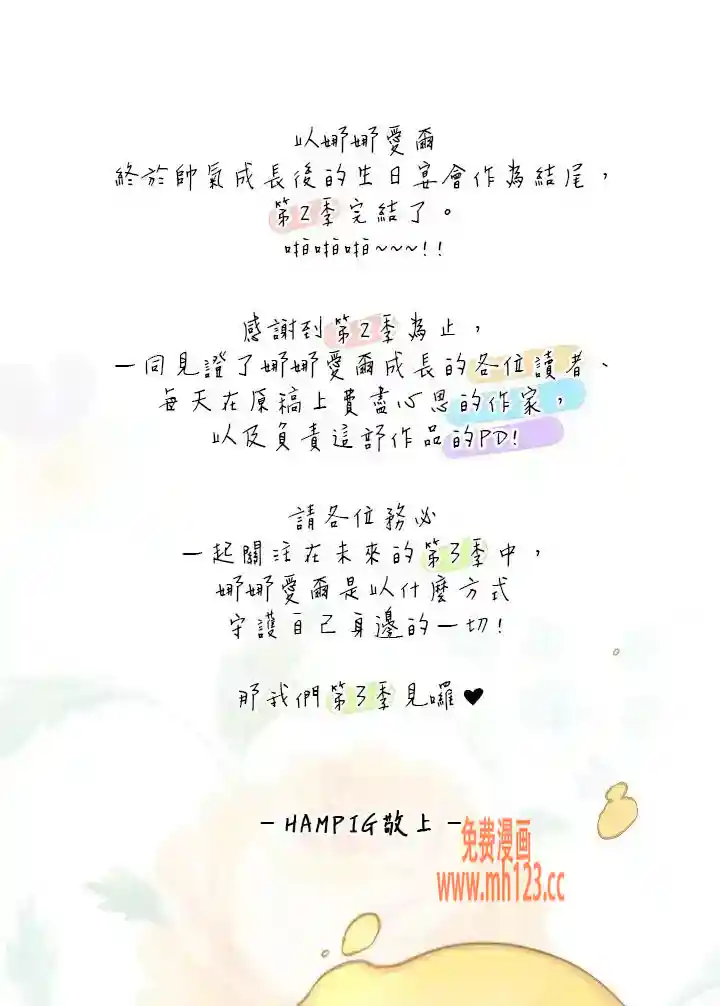 以娜娜愛爾
終於帥氣成長後的生日宴會作為結尾，
第2季完結了。
啪啪啪~~~!!
感謝到第2季為止，
一同見證了娜娜愛爾成長的各位讀者、
每天在原稿上費盡心思的作家，
以及負責這部作品的PD!
請各位務必
一起關注在未來的第3季中，
娜娜愛爾是以什麼方式
守護自己身邊的一切!
那我們第3季見囉♥
－HAMPIG敬上－
免费漫画
www.mh123.cc